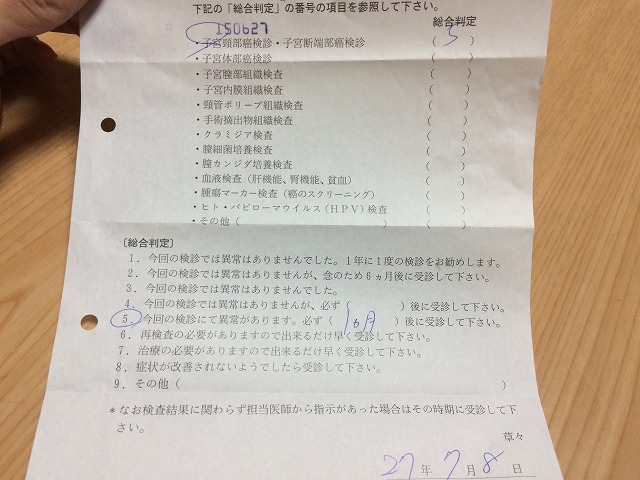 下記の「総合判定」の番号の項目を参照して下さい。
総合判定
150627
・子宮頸部癌検診・子宮断端部癌検診 ( 5 )
・子宮体部癌検診 ( )
・子宮腟部組織検査 ( )
・子宮内膜組織検査 ( )
・頸管ポリープ組織検査 ( )
・手術摘出物組織検査 ( )
・クラミジア検査 ( )
・腟細菌培養検査 ( )
・腟カンジダ培養検査 ( )
・血液検査（肝機能、腎機能、貧血） ( )
・腫瘍マーカー検査（癌のスクリーニング） ( )
・ヒト・パピローマウイルス（ＨＰＶ）検査 ( )
・その他（ ） ( )
〔総合判定〕
１．今回の検診では異常はありませんでした。１年に１度の検診をお勧めします。
２．今回の検診では異常はありませんが、念のため６ヵ月後に受診して下さい。
３．今回の検診では異常はありませんでした。
４．今回の検診では異常はありませんが、必ず（ ）後に受診して下さい。
５．今回の検診にて異常があります。必ず（ 1ヵ月 ）後に受診して下さい。
６．再検査の必要がありますので出来るだけ早く受診して下さい。
７．治療の必要がありますので出来るだけ早く受診して下さい。
８．症状が改善されないようでしたら受診して下さい。
９．その他（ ）
＊なお検査結果に関わらず担当医師から指示があった場合はその時期に受診して下
さい。
草々
27年 7月 8日